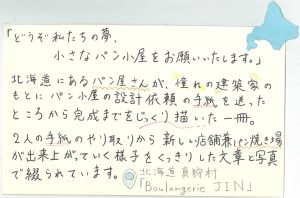 「どうぞ私たちの夢、
小さなパン小屋をお願いいたします。」
北海道にあるパン屋さんが、憧れの建築家の
もとにパン小屋の設計依頼の手紙を送った
ところから完成までをじっくり描いた一冊。
2人の手紙のやり取りから新しい店舗兼パン焼き場
が出来上がっていく様子をくっきりした文章と写真
で綴られています。
北海道真狩村
「Boulangerie JIN」